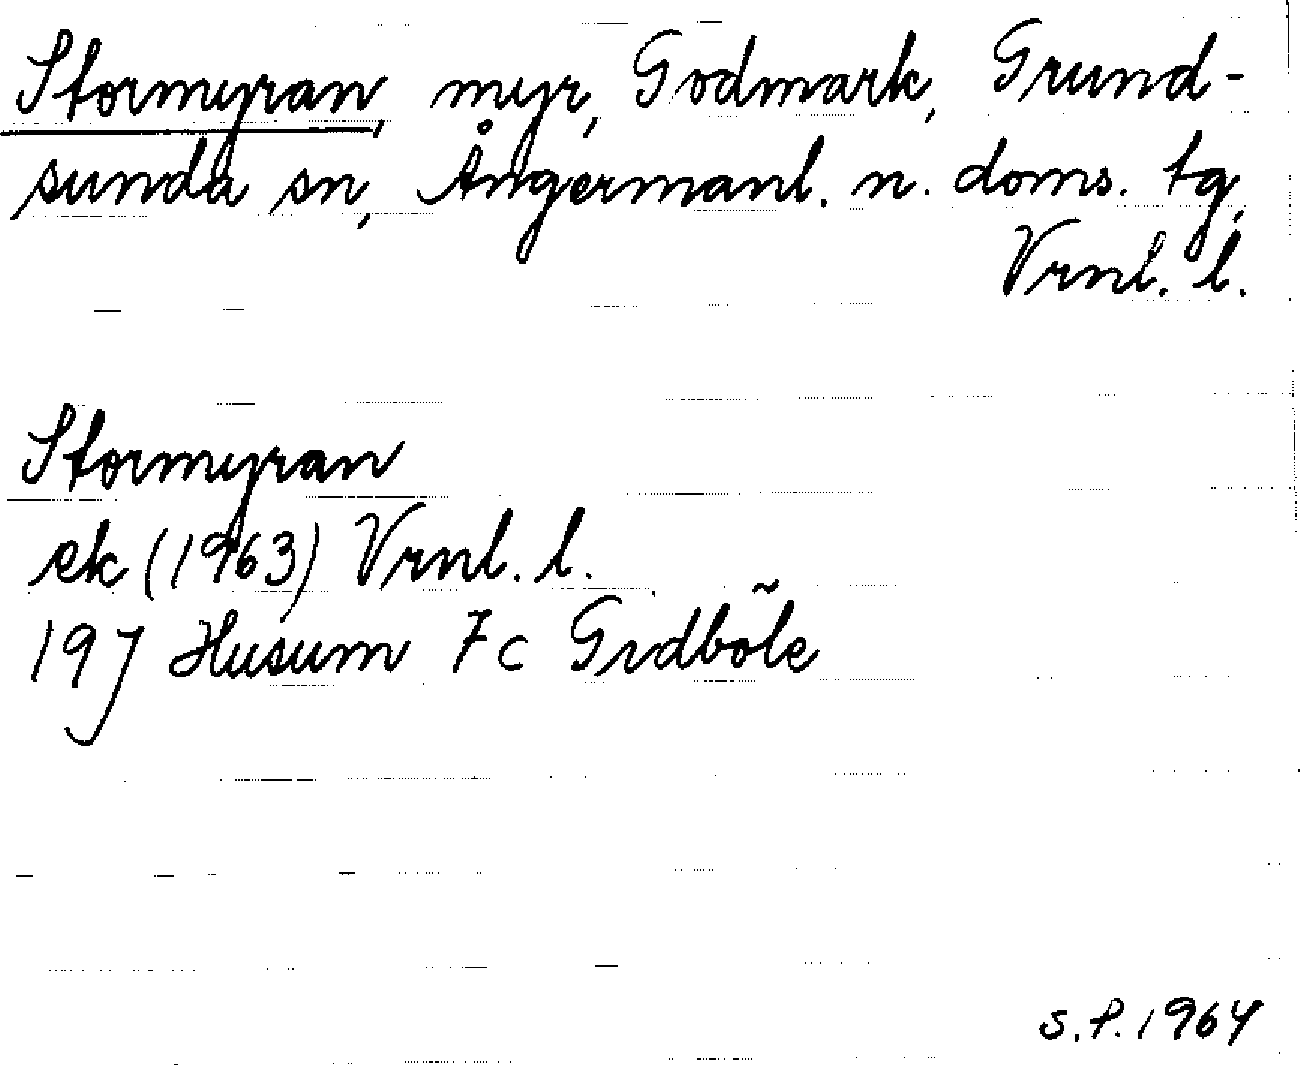 Stormyran, myr, Godmark, Grund-
sunda sn, Ångermanl. n. doms. tg,
Vrnl. l.
Stormyran
ek (1963) Vrnl. l.
19J Husum 7c Gidböle
s.P. 1964